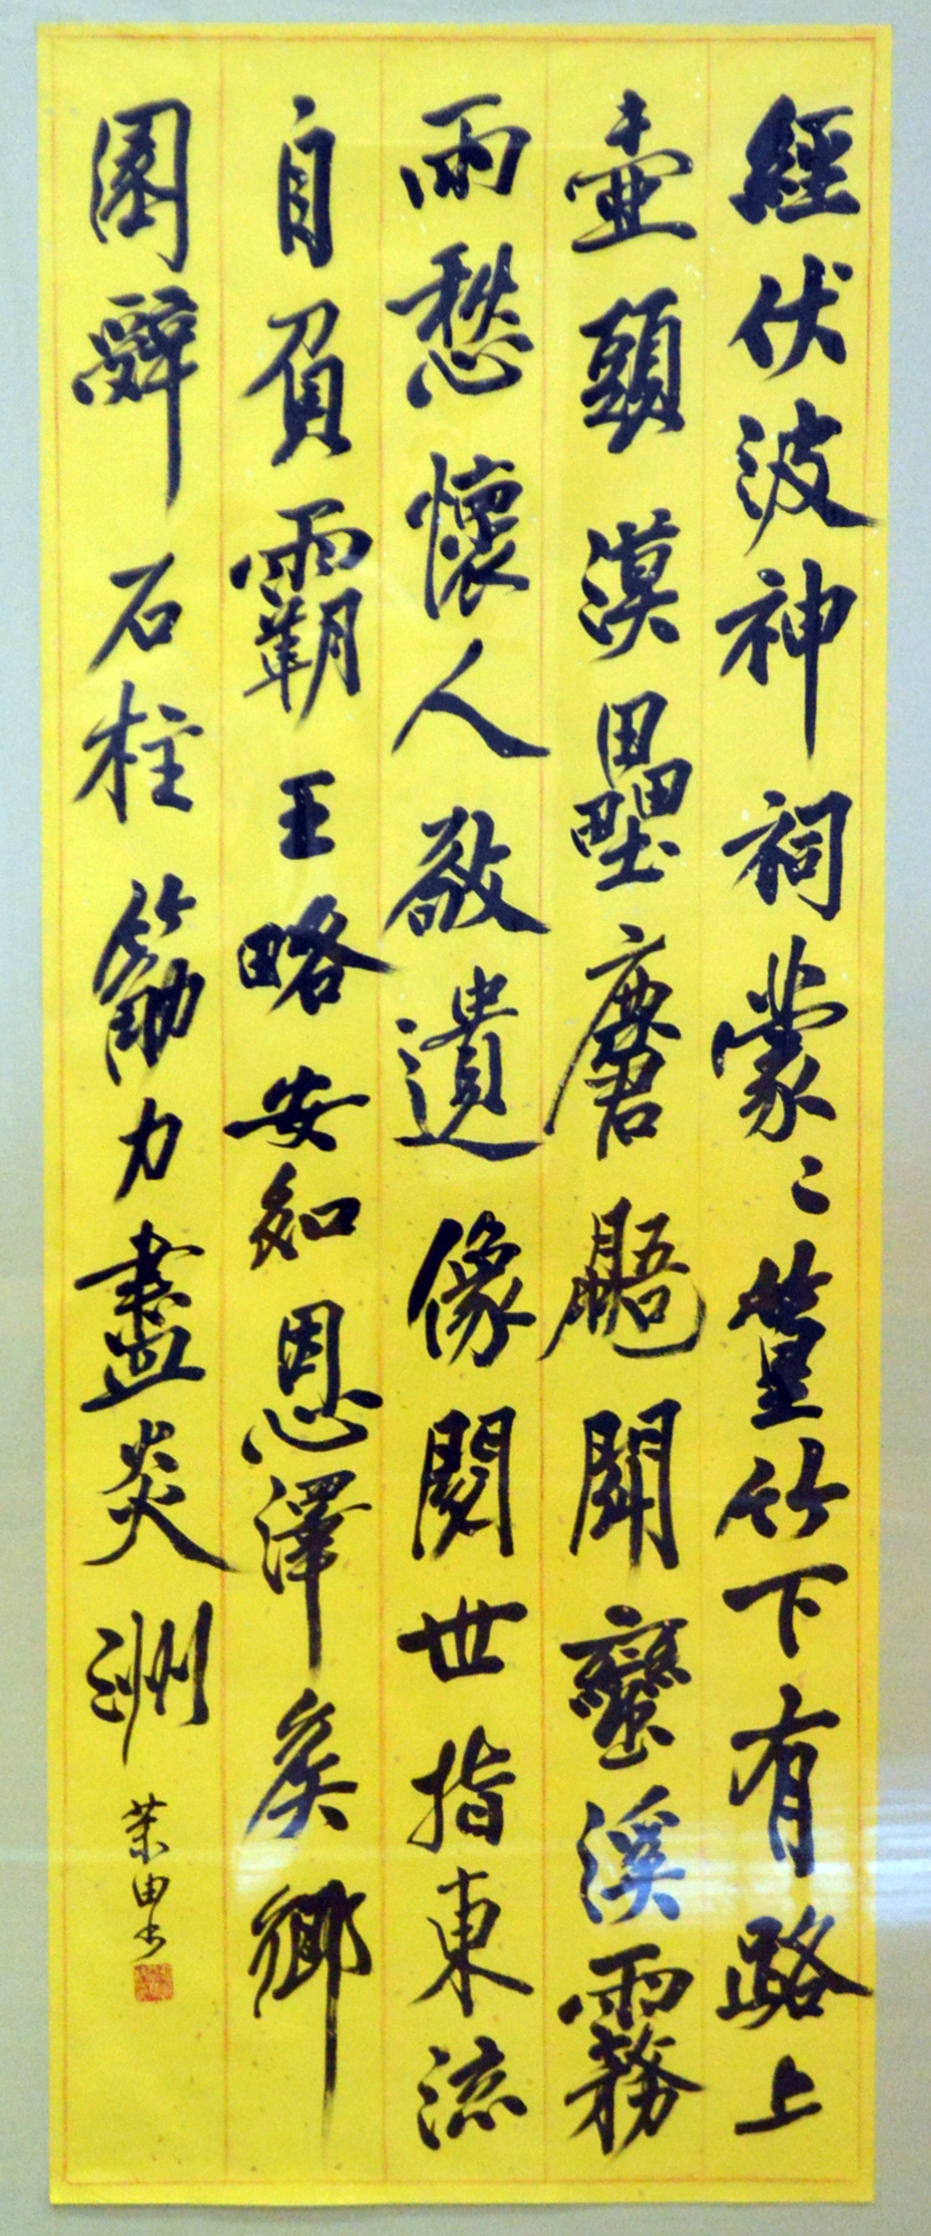 經伏波神祠蒙〻篁竹下有路上
壺頭漢壘麏鼯鬬蠻溪霧
雨愁懷人敬遺像閱世指東流
自負霸王略安知恩澤侯鄉
園辭石柱筋力盡炎洲